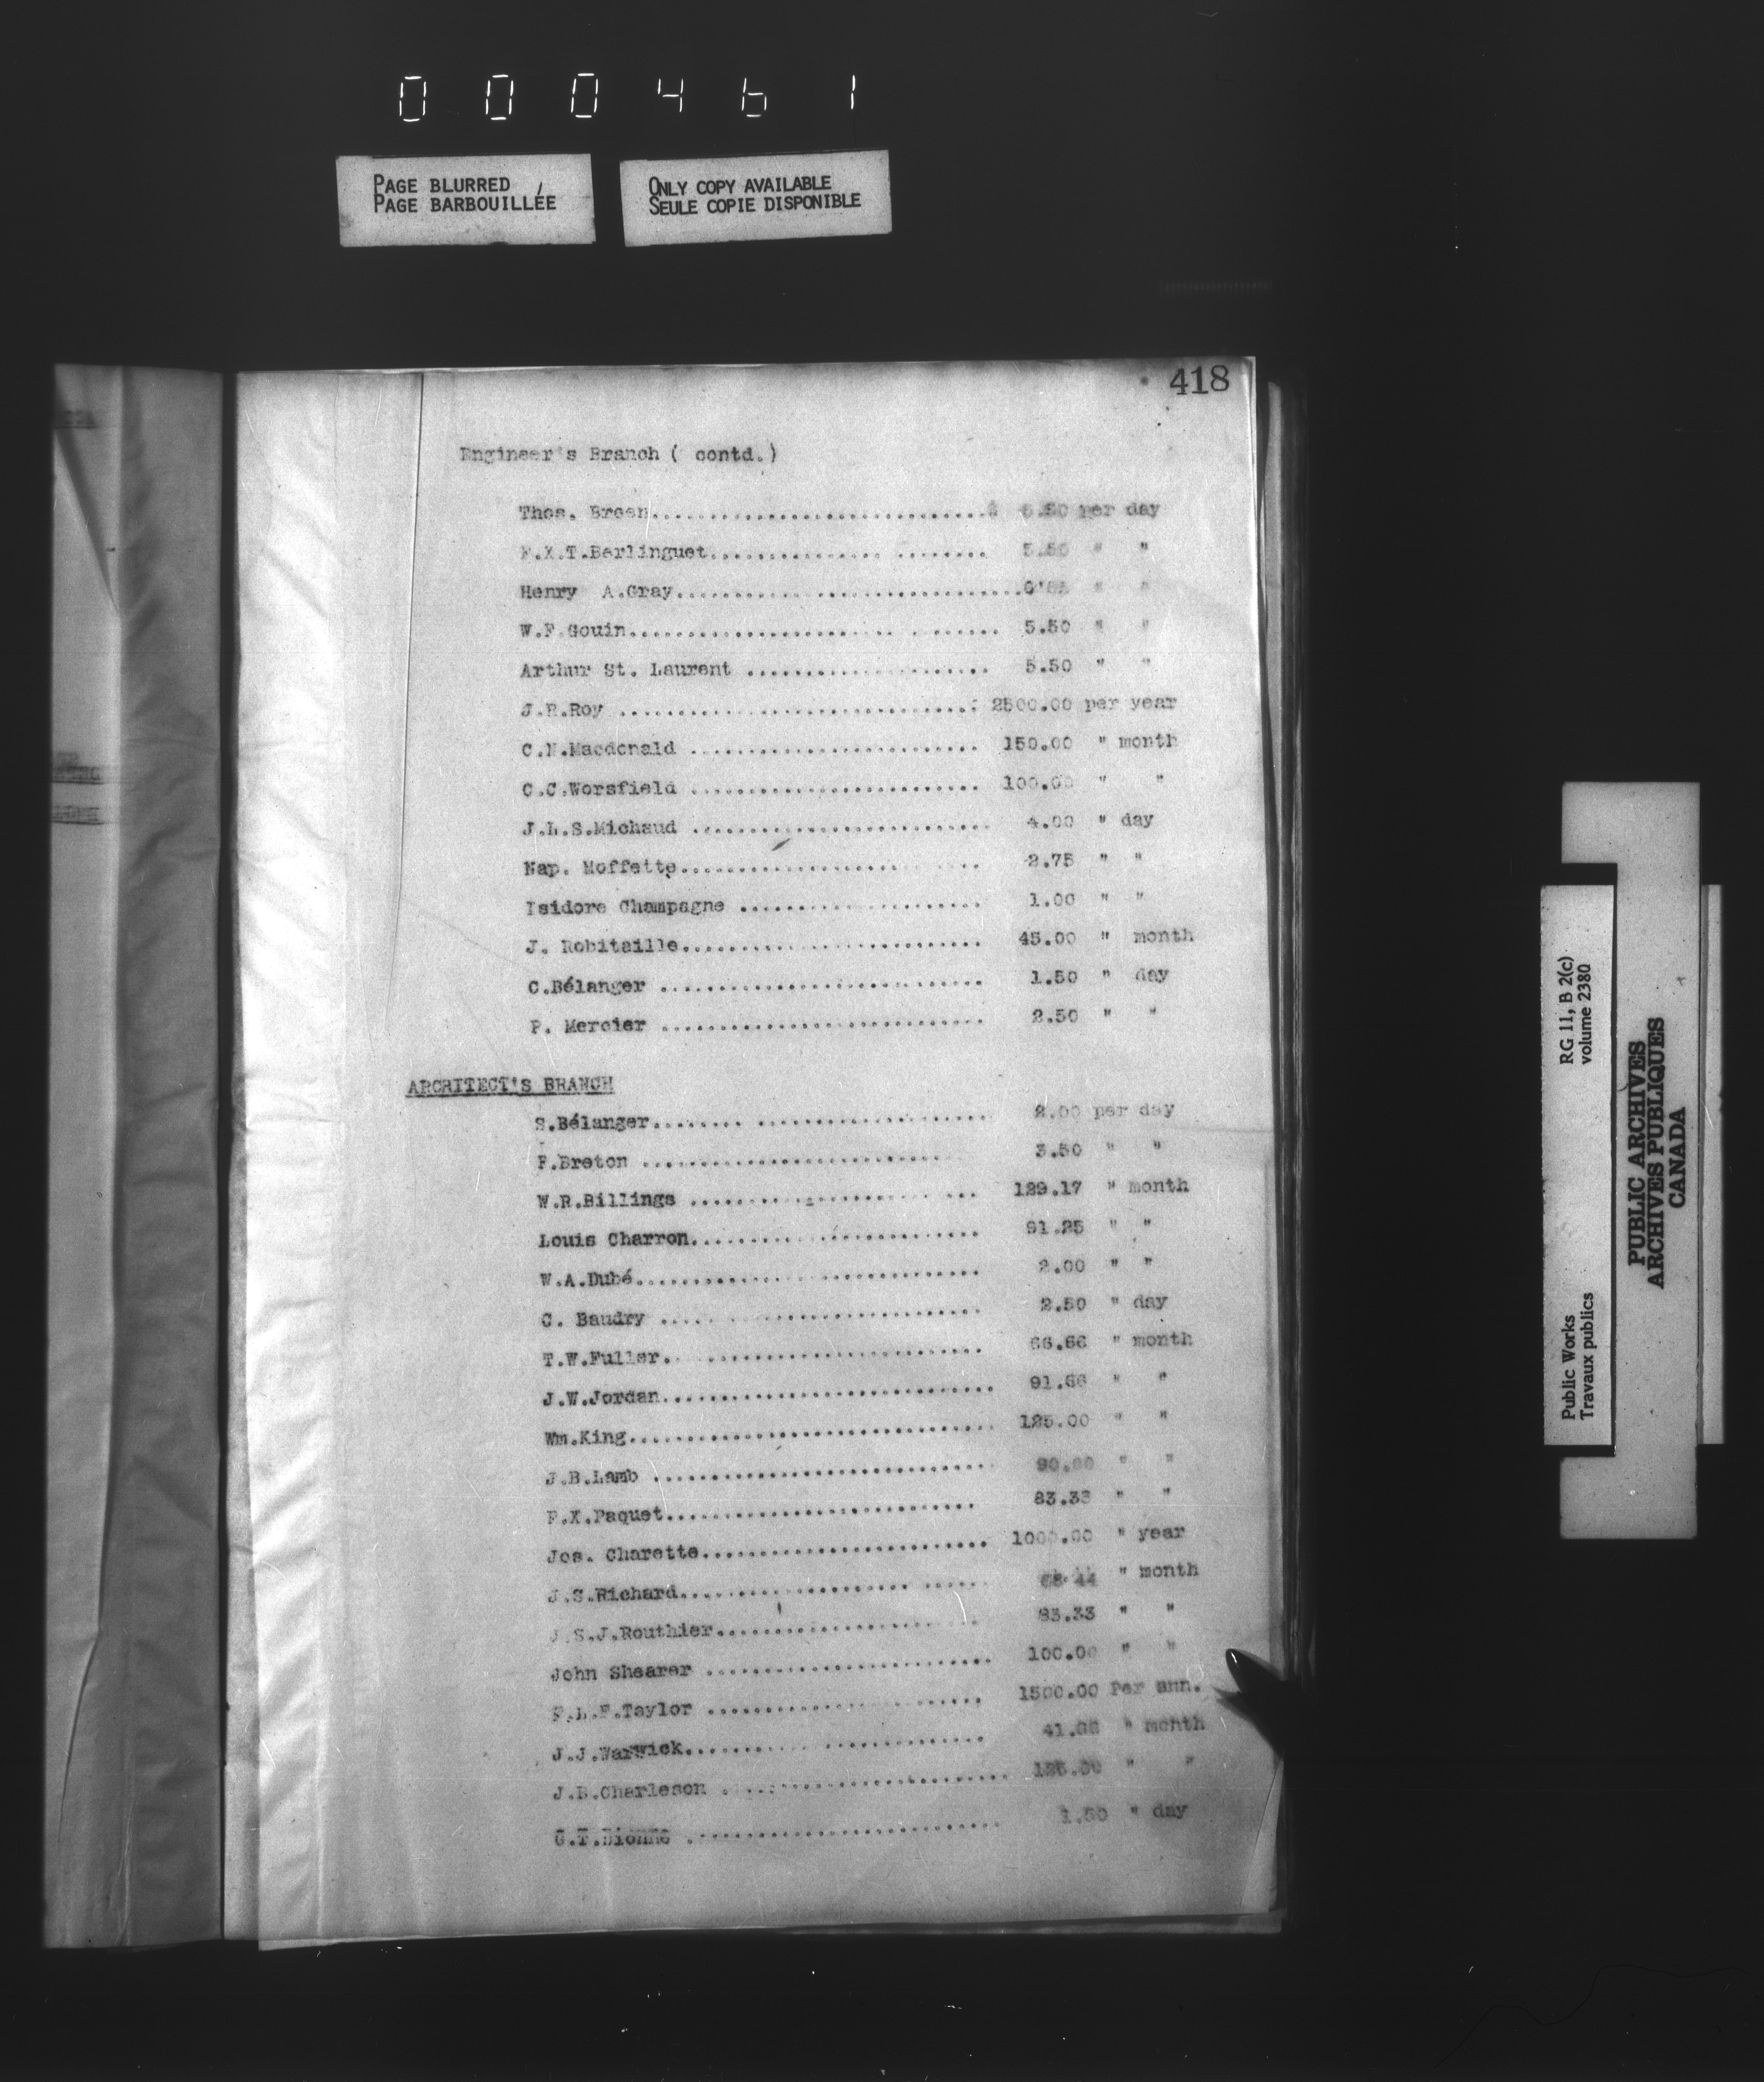 000461
PAGE BLURRED
PAGE BARBOUILLÉE
ONLY COPY AVAILABLE
SEULE COPIE DISPONIBLE
418
Engineer's Branch ( contd.)
Thos. Breen..............................$ per day
F.X.T.Berlinguet........................ 5.50 " "
Henry A.Gray.............................. " "
W.F.Gouin............................... 5.50 " "
Arthur St. Laurent ..................... 5.50 " "
J.R.Roy ............................... 2500.00 per year
C.N.Macdonald ......................... 150.00 " month
C.C.Worsfield ......................... 100.00 " "
J.L.S.Michaud .......................... 4.00 " day
Nap. Moffette.......................... 2.75 " "
Isidore Champagne ..................... 1.00 " "
J. Robitaille.......................... 45.00 " month
C.Bélanger ............................ 1.50 " day
P. Mercier ............................ 2.50 " "
ARCHITECT'S BRANCH
S.Bélanger............................. 2.00 per day
F.Breton ............................ 3.50 " "
W.R.Billings ......................... 129.17 " month
Louis Charron......................... 91.25 " "
W.A.Dubé.............................. 2.00 " "
C. Baudry ............................ 2.50 " day
T.W.Fuller............................ 66.66 " month
J.W.Jordan............................. 91.66 " "
Wm.King................................ 125.00 " "
J.B.Lamb .............................. " "
F.X.Paquet........................... 83.33 " "
Jos. Charette......................... 1000.00 " year
J.S.Richard........................... " month
J.S.J.Routhier....................... 83.33 " "
John Shearer ......................... 100.00 " "
F.L.F.Taylor ........................ 1500.00 Per ann.
J.J.Warwick.......................... 41.66 " month
J.B.Charleson ......................... 125.00 " "
G.T.Dionne ........................... 1.50 " day
Public Works
Travaux publics
RG 11, B 2(c)
volume 2380
PUBLIC ARCHIVES
ARCHIVES PUBLIQUES
CANADA